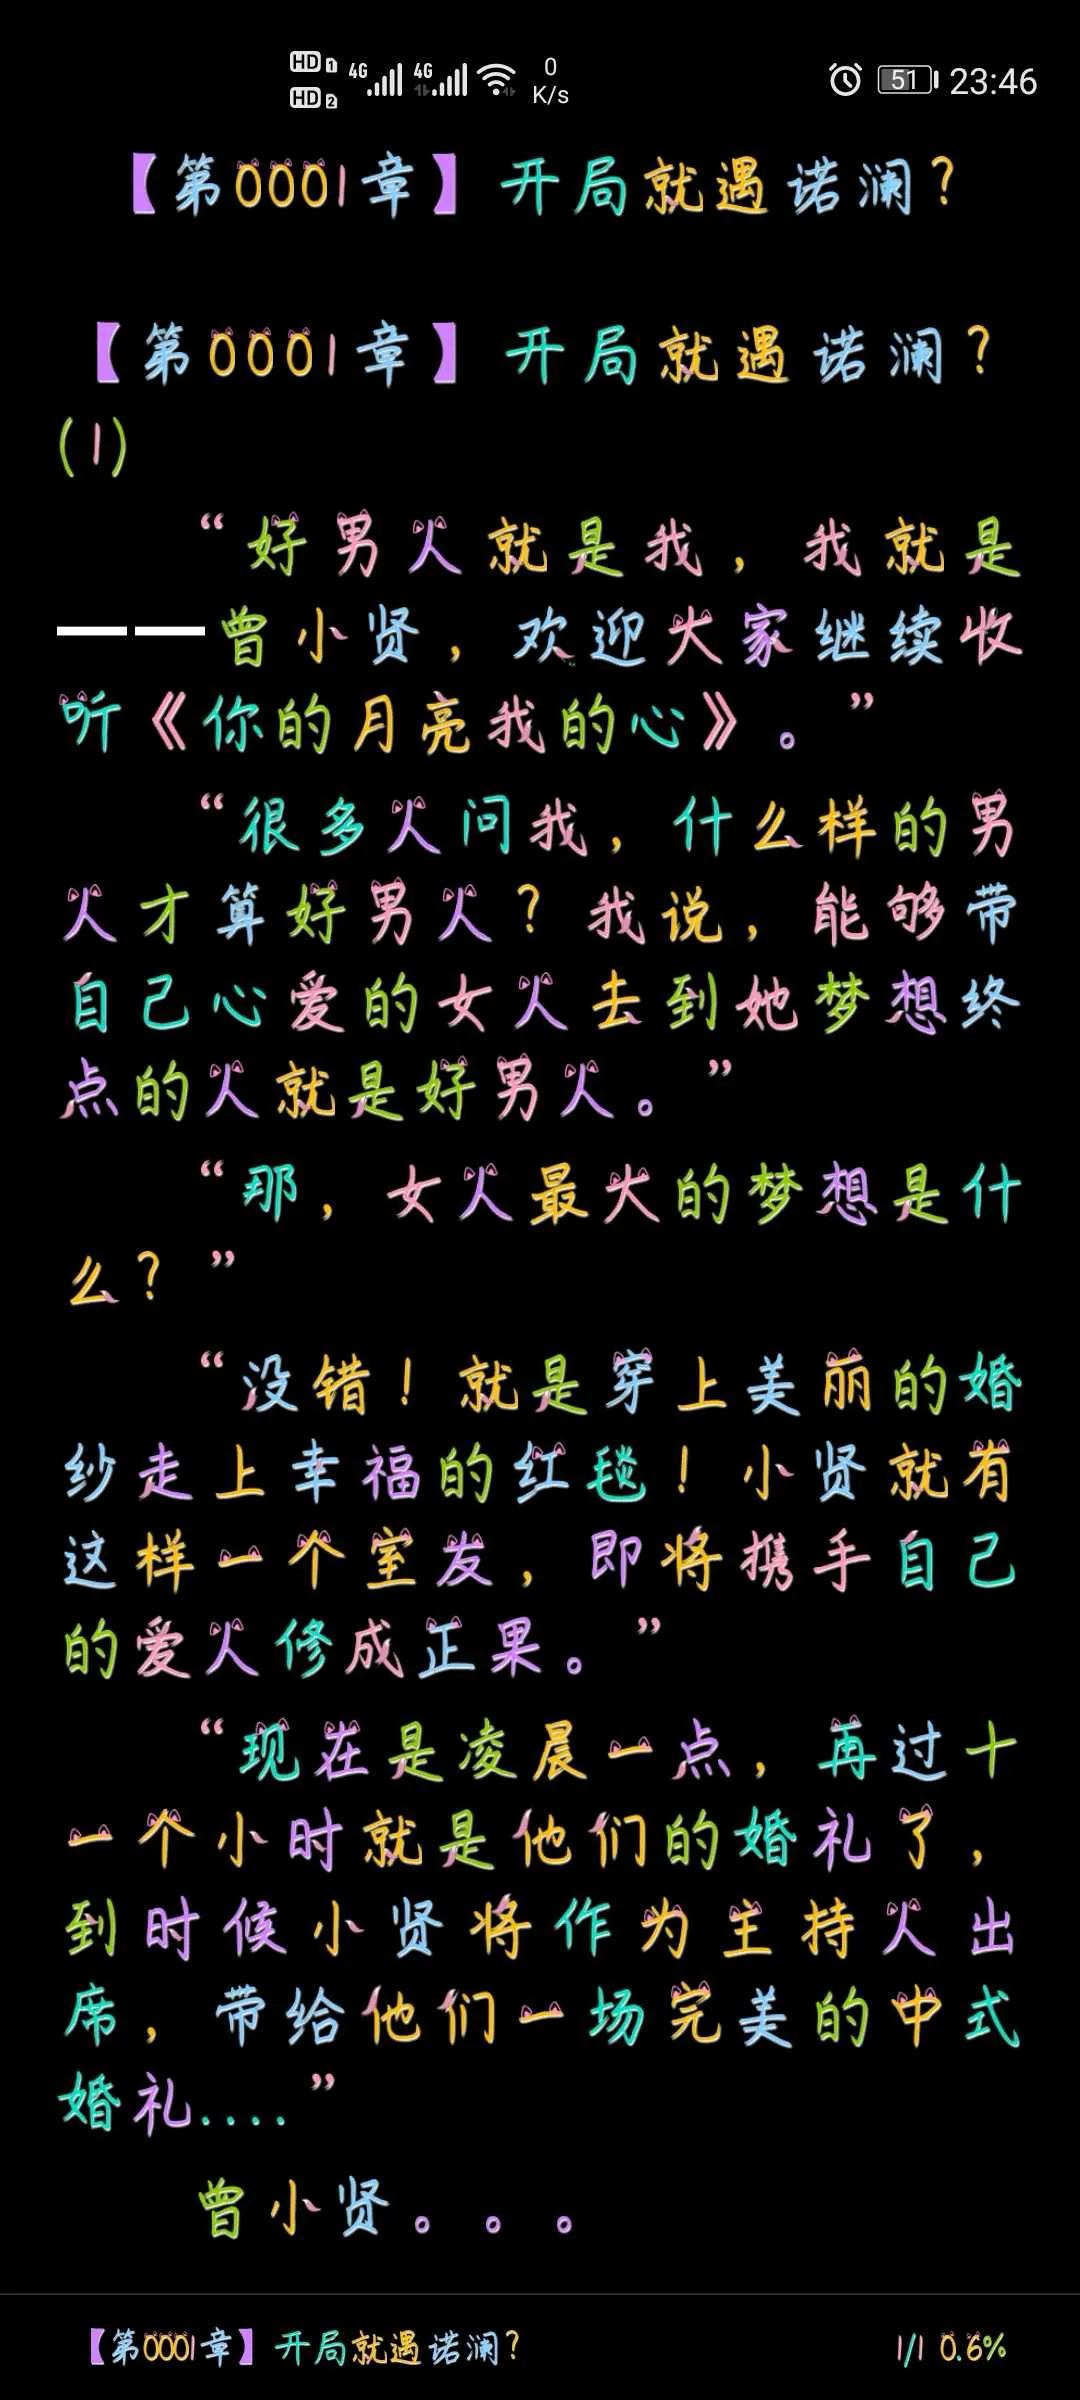 HD 1 4G 4G 0 51 23:46
HD 2 K/s
【第0001章】开局就遇诺澜?
【第0001章】开局就遇诺澜?
(1)
“好男人就是我，我就是
——曾小贤，欢迎大家继续收
听《你的月亮我的心》。”
“很多人问我，什么样的男
人才算好男人?我说，能够带
自己心爱的女人去到她梦想终
点的人就是好男人。”
“那，女人最大的梦想是什
么?”
“没错!就是穿上美丽的婚
纱走上幸福的红毯!小贤就有
这样一个室发，即将携手自己
的爱人修成正果。”
“现在是凌晨一点，再过十
一个小时就是他们的婚礼了，
到时候小贤将作为主持人出
席，带给他们一场完美的中式
婚礼....”
曾小贤。。。
【第0001章】开局就遇诺澜? 1/1 0.6%